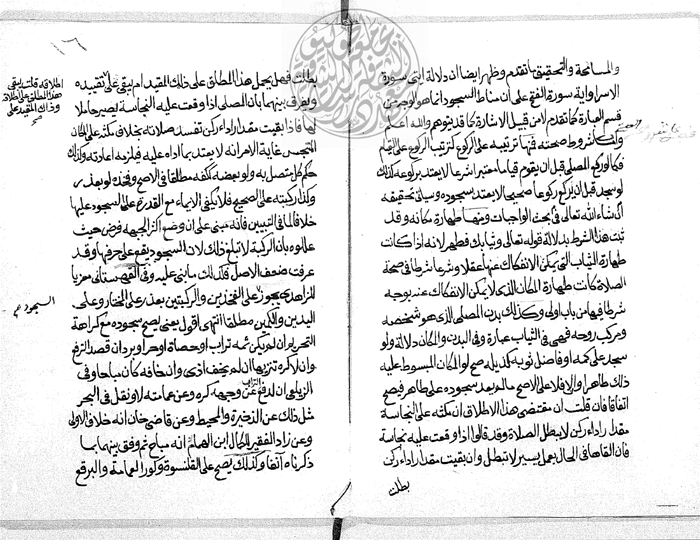 والمسامحة والتحقيق ما تقدم وظهر ايضا ان دلالة ايتى سورة
الاسرا وآية سورة الفتح على أن مناط السجود انما هو الوجه من
قسم العبارة كما تقدم لا من قبيل الاشارة كما قد يتوهم والله اعلم
واما شروط صحته فمنها ترتيبه على الركوع كترتيب الركوع على القيام
فكما لو ركع المصلى قبل ان يقوم قياما معتبرا شرعا لا يعتد بركوعه كذلك
لو سجد قبل ان يركع ركوعا صحيحا لا يعتد بسجوده وسياتى تحقيقه
ان شاء الله تعالى فى بحث الواجبات ومنها طهارة مكانه وقد
ثبت هذا الشرط بدلالة قوله تعالى وثيابك فطهر لانه اذا كانت
طهارة الثياب التى يمكن الانفكاك عنها عقلا وشرعا شرطا فى صحة
الصلاة كانت طهارة المكان الذى لا يمكن الانفكاك عنه بوجه
شرطا فيها من باب اولى وكذلك بدن المصلى الذى هو شخصه
ومركب روحه فهى فى الثياب عبارة وفى البدن والمكان دلالة ولو
سجد على كمه او فاضل ثوبه كذيله صح لو المكان المبسوط عليه
ذلك طاهرا والا فلا على الاصح ما لم يعد سجوده على طاهر فيصح
اتفاقا فان قلت ان مقتضى هذا الاطلاق ان مكثه على النجاسة
مقدار اداء ركن لا يبطل الصلاة وقد قالوا اذا وقعت عليه نجاسة
فان القاها فى الحال بعمل يسير لا تبطل وان بقيت مقدار اداء ركن
بطلت
بطلت فهل يحمل هذا المطلق على ذلك المقيد ام يبقى على تقييده
ويفرق بينهما بان المصلى اذا وقعت عليه النجاسة يصير حاملا
لها فاذا بقيت مقدار اداء ركن تفسد صلاته بخلاف مكثه على المكان
النجس غاية الامر انه لا يعتد بما اداه عليه فيلزمه اعادته وكذلك
حكم كل متصل به ولو بعضه ككفه مطلقا فى الاصح وفخذه لو بعذر
وكذا ركبته على الصحيح فلا تكفى الايماء مع القدرة على السجود عليها
خلافا لما فى التبيين فانه مبنى على ان وضع اكثر الجبهة فرض حيث
عللوه بان الركبة لا تبلغ ذلك لان السجود يقع على حرفها وقد
عرفت ضعف الاصل فكذلك ما بنى عليه وفى القهستانى معزيا
للزاهدى يجوز على الفخذين والركبتين بعذر على المختار وعلى
اليدين والكمين مطلقا انتهى اقول يعنى يصح سجوده مع كراهة
التحريم ان لم يكن ثمه تراب او حصاة او حر او برد ان قصد الترفع
وان لا كره تنزيها ان لم يخف اذى وان خافه كان مباحا وفى
الزيلعى ان لدفع التراب عن وجهه كره وعن عمامته لا ونقل فى البحر
مثل ذلك عن الذخيرة والمحيط وعن قاضى خان انه خلاف الاولى
وعن زاد الفقير للكمال ابن الهمام انه مباح ثم وفق بينها بما
ذكرناه آنفا وكذلك يصح على القلنسوة وكور العمامة والبرقع
اطلاقه قلت يبقى
هذا المطلق على اطلاقه
وذاك المقيد على
صح
السجود ع